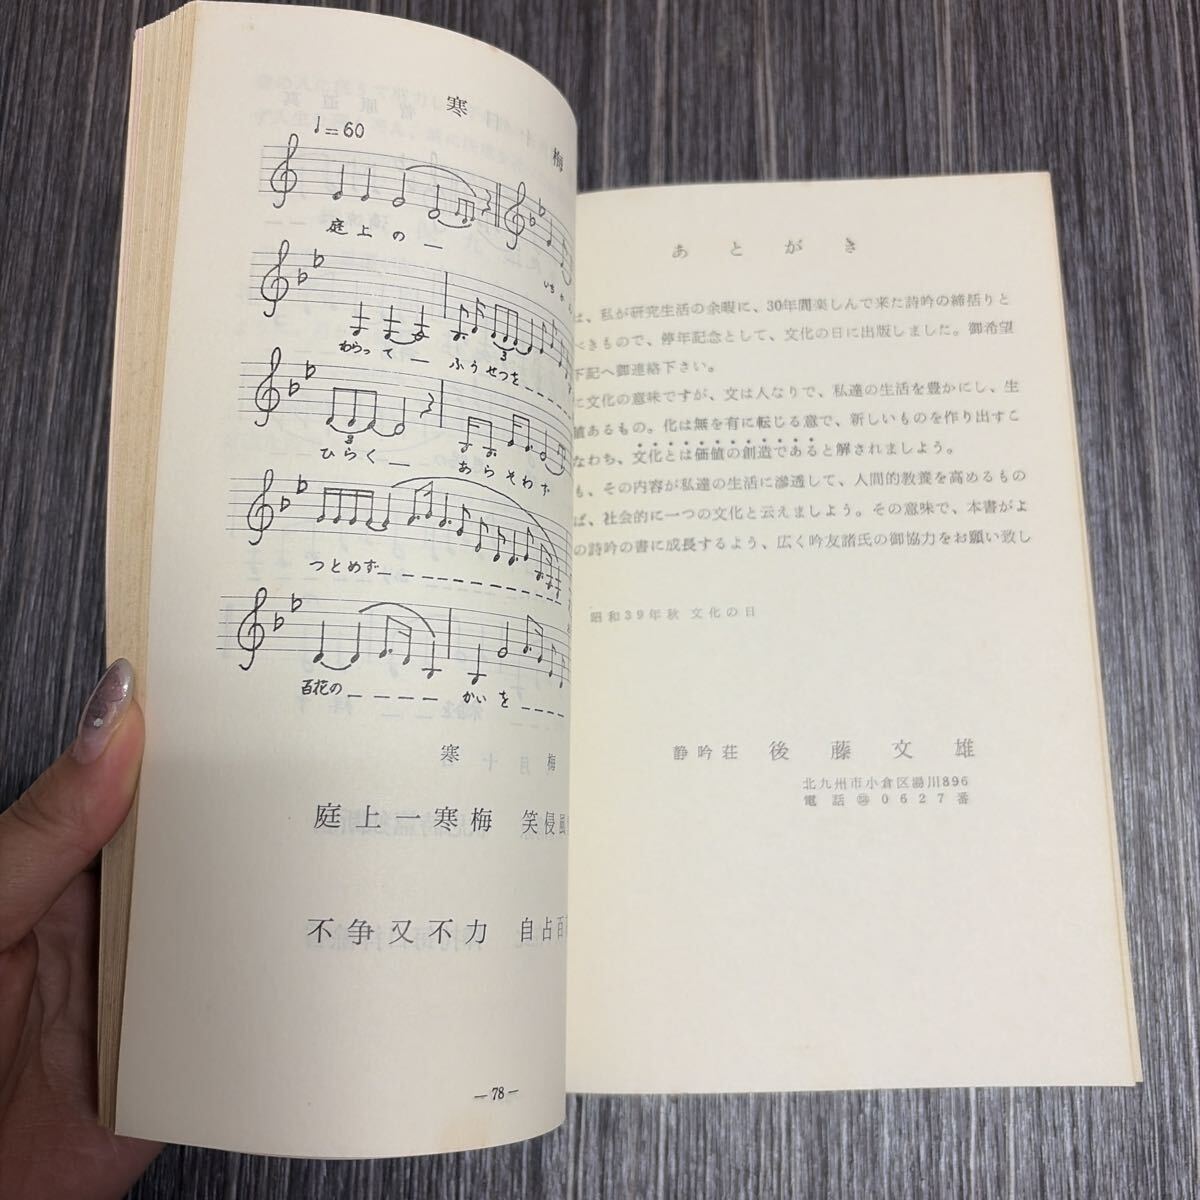 寒 梅
♩=60
庭上の—
いちか
わらって— ふうせつを
3
ひらく— あらそわず
3
つとめず
百花の かいを
寒 梅
庭上一寒梅 笑侵風
不争又不力 自占百
—78—
あとがき
は、私が研究生活の余暇に、30年間楽しんで来た詩吟の締括りと
べきもので、停年記念として、文化の日に出版しました。御希望
下記へ御連絡下さい。
に文化の意味ですが、文は人なりで、私達の生活を豊かにし、生
値あるもの。化は無を有に転じる意で、新しいものを作り出すこ
なわち、文化とは価値の創造であると解されましょう。
も、その内容が私達の生活に滲透して、人間的教養を高めるもの
ば、社会的に一つの文化と云えましょう。その意味で、本書がよ
の詩吟の書に成長するよう、広く吟友諸氏の御協力をお願い致し
昭和39年秋 文化の日
静吟荘 後藤文雄
北九州市小倉区湯川896
電話 0627番